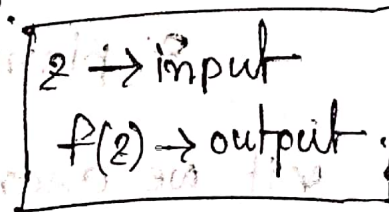 z → input
f(z) → output.